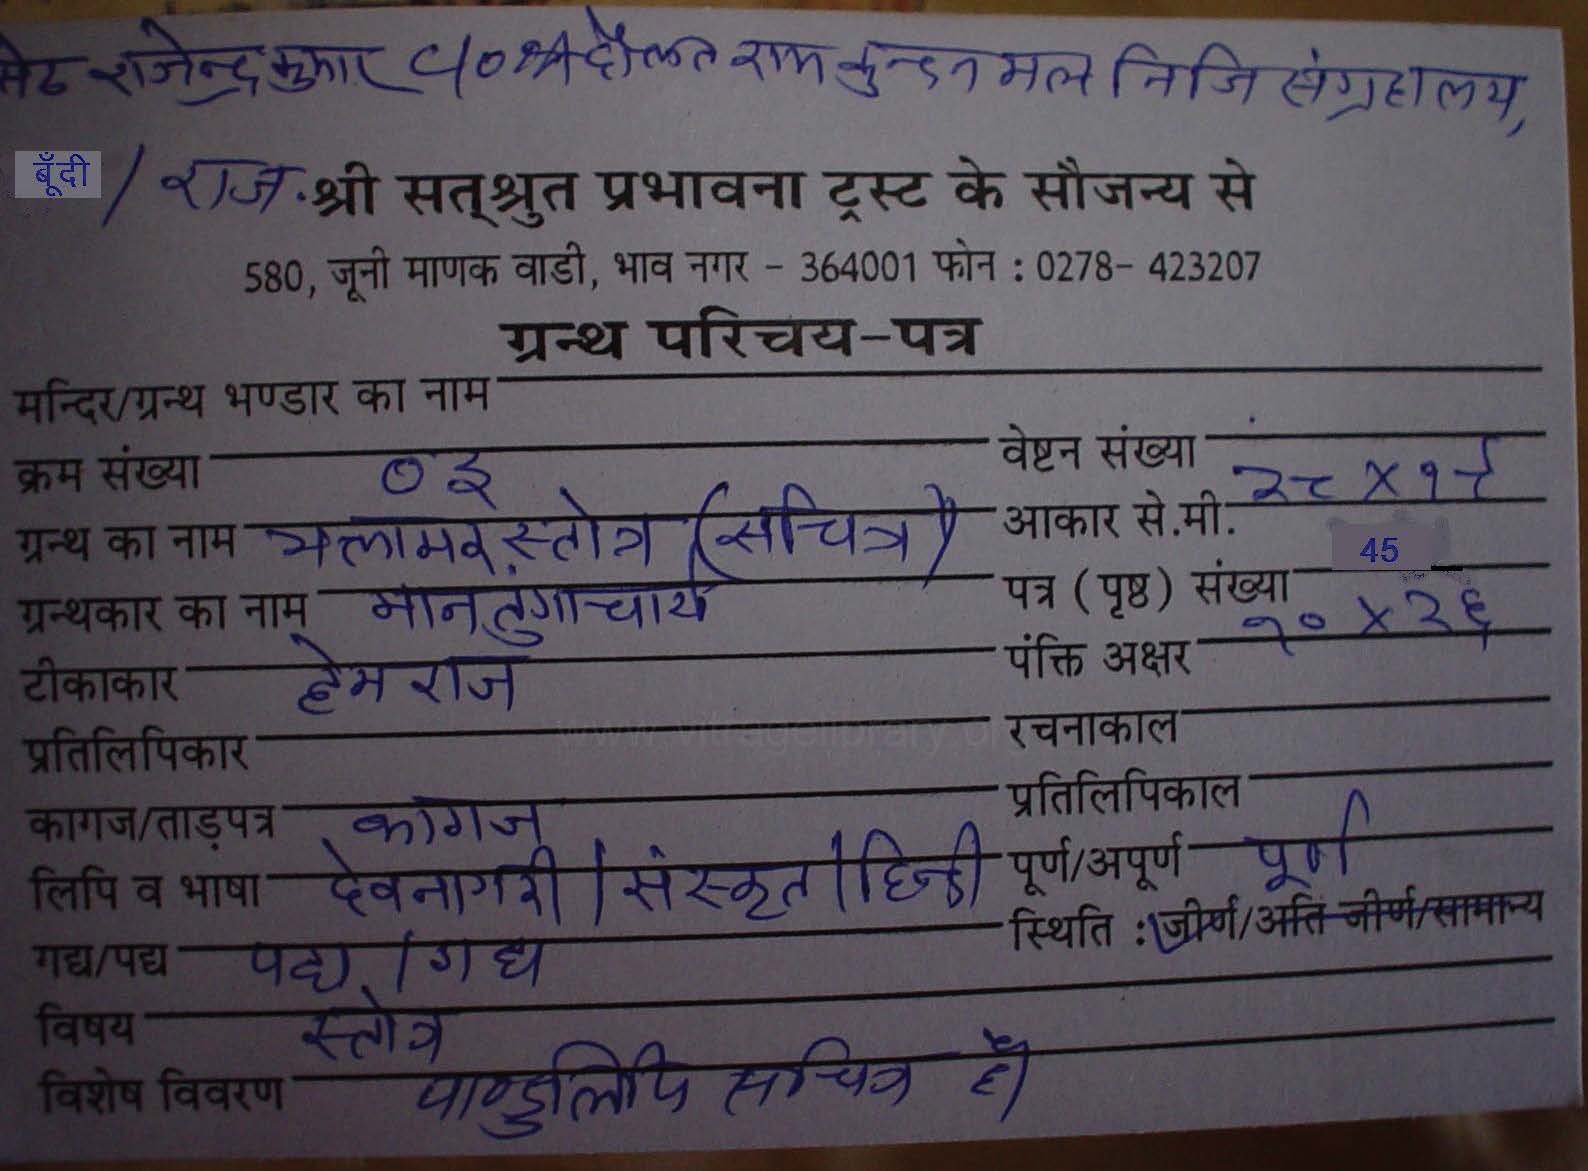 सेठ राजेन्द्र कुमार C/० श्री दौलत राम कुन्दन मल निजि संग्रहालय,
बूँदी / राज. श्री सत्श्रुत प्रभावना ट्रस्ट के सौजन्य से
580, जूनी माणक वाडी, भाव नगर - 364001 फोन : 0278- 423207
ग्रन्थ परिचय-पत्र
मन्दिर/ग्रन्थ भण्डार का नाम
क्रम संख्या ०३ वेष्टन संख्या
ग्रन्थ का नाम भक्तामर स्तोत्र (सचित्र) आकार से.मी. २८ X १८
ग्रन्थकार का नाम मानतुंगाचार्य पत्र (पृष्ठ) संख्या 45
टीकाकार हेमराज पंक्ति अक्षर १० X २६
प्रतिलिपिकार रचनाकाल
www.vitragelibrary.or
कागज/ताड़पत्र कागज प्रतिलिपिकाल
लिपि व भाषा देवनागरी / संस्कृत / हिन्दी पूर्ण/अपूर्ण पूर्ण
गद्य/पद्य पद्य / गद्य स्थिति : जीर्ण/अति जीर्ण/सामान्य
विषय स्तोत्र
विशेष विवरण पाण्डुलिपि सचित्र है।